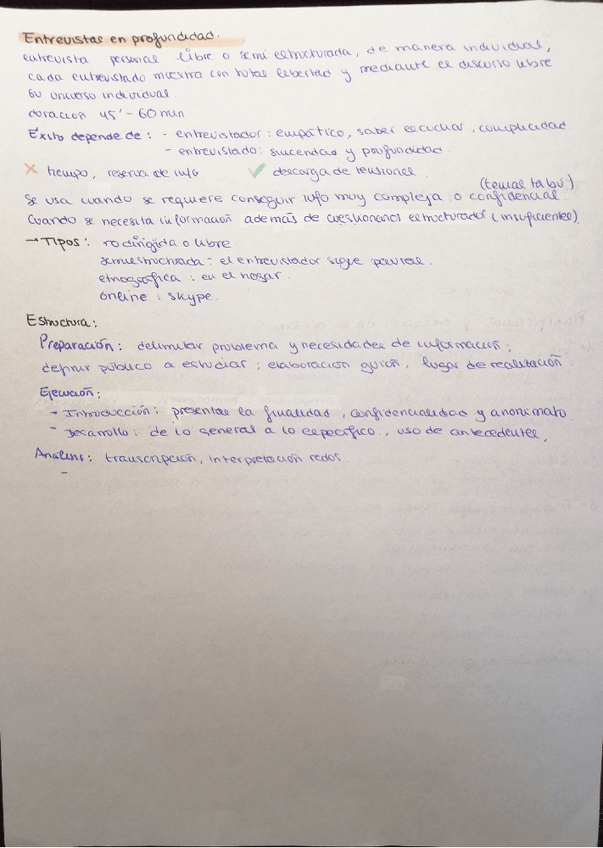 Entrevistas en profundidad.
entrevista personal libre o semi estructurada, de manera individual,
cada entrevistado muestra con totas libertad y mediante el discurso libre
su universo individual.
duración 45' - 60 min
Éxito depende de: - entrevistador: empático, saber escuchar, complicidad
- entrevistado: sinceridad y profundidad.
✗ tiempo, reserva de info ✓ descarga de tensiones.
(temas tabú)
Se usa cuando se requiere conseguir info muy compleja o confidencial.
Cuando se necesita información además de cuestionarios estructurados (insuficientes)
→ Tipos: no dirigida o libre.
semiestructurada: el entrevistador sigue pautas.
etnográfica: en el hogar.
online: skype.
Estructura:
Preparación: delimitar problema y necesidades de información;
definir público a estudiar; elaboración guión, lugar de realización.
Ejecución:
- Introducción: presentar la finalidad, confidencialidad y anonimato.
- Desarrollo: de lo general a lo específico, uso de antecedentes,
Análisis: transcripción, interpretación
-